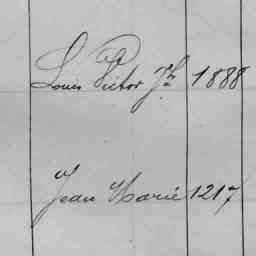 Louis Victor Jh 1888
Jean Marie 1217